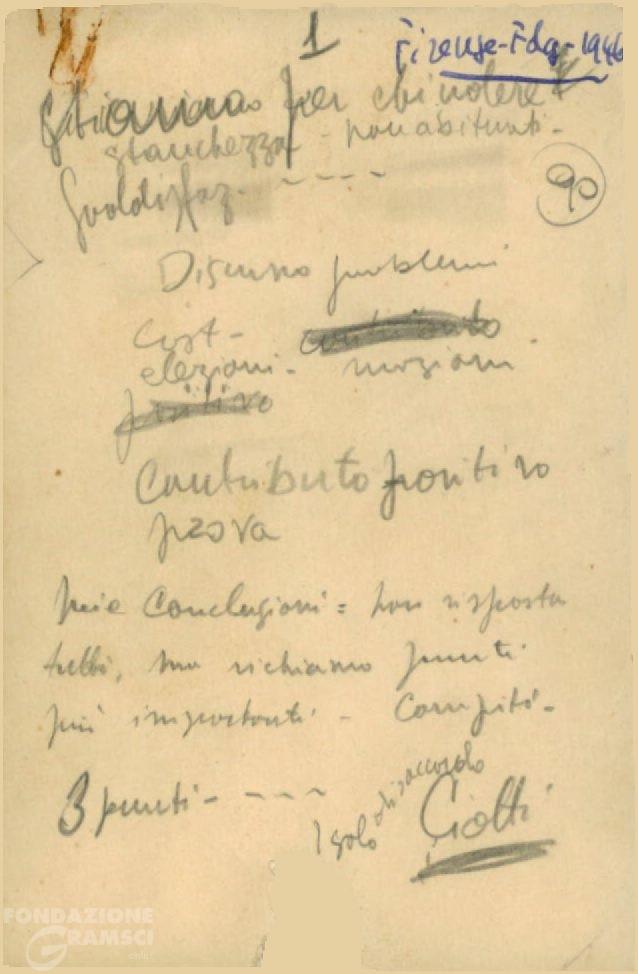 1
Firenze-Fdg-1946
Stiamo per chiudere
stanchezza - non abituati -
Soddisfaz. - - - -
90
Discusso problemi
Cost -
elezioni - mozioni -
positivo
Contributo positivo
prova
mie Conclusioni = non risposta
tutti, ma richiamo punti
più importanti - Compiti -
3 punti - - - -
1 solo disaccordo
Ciotti
FONDAZIONE
GRAMSCI